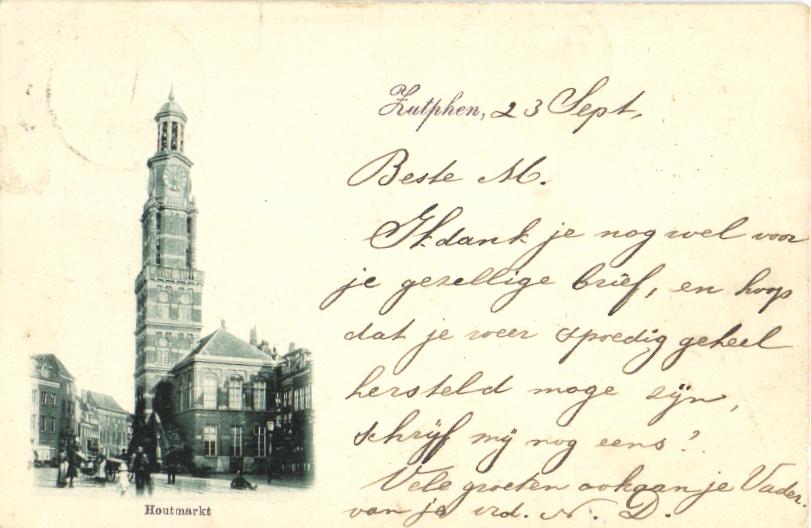 Zutphen, 23 Sept.
Beste M.
Ik dank je nog wel voor
je gezellige brief, en hoop
dat je weer spoedig geheel
hersteld moge zijn,
schrijf mij nog eens?
Vele groeten ook aan je Vader,
van je vrd. N. D.
Houtmarkt